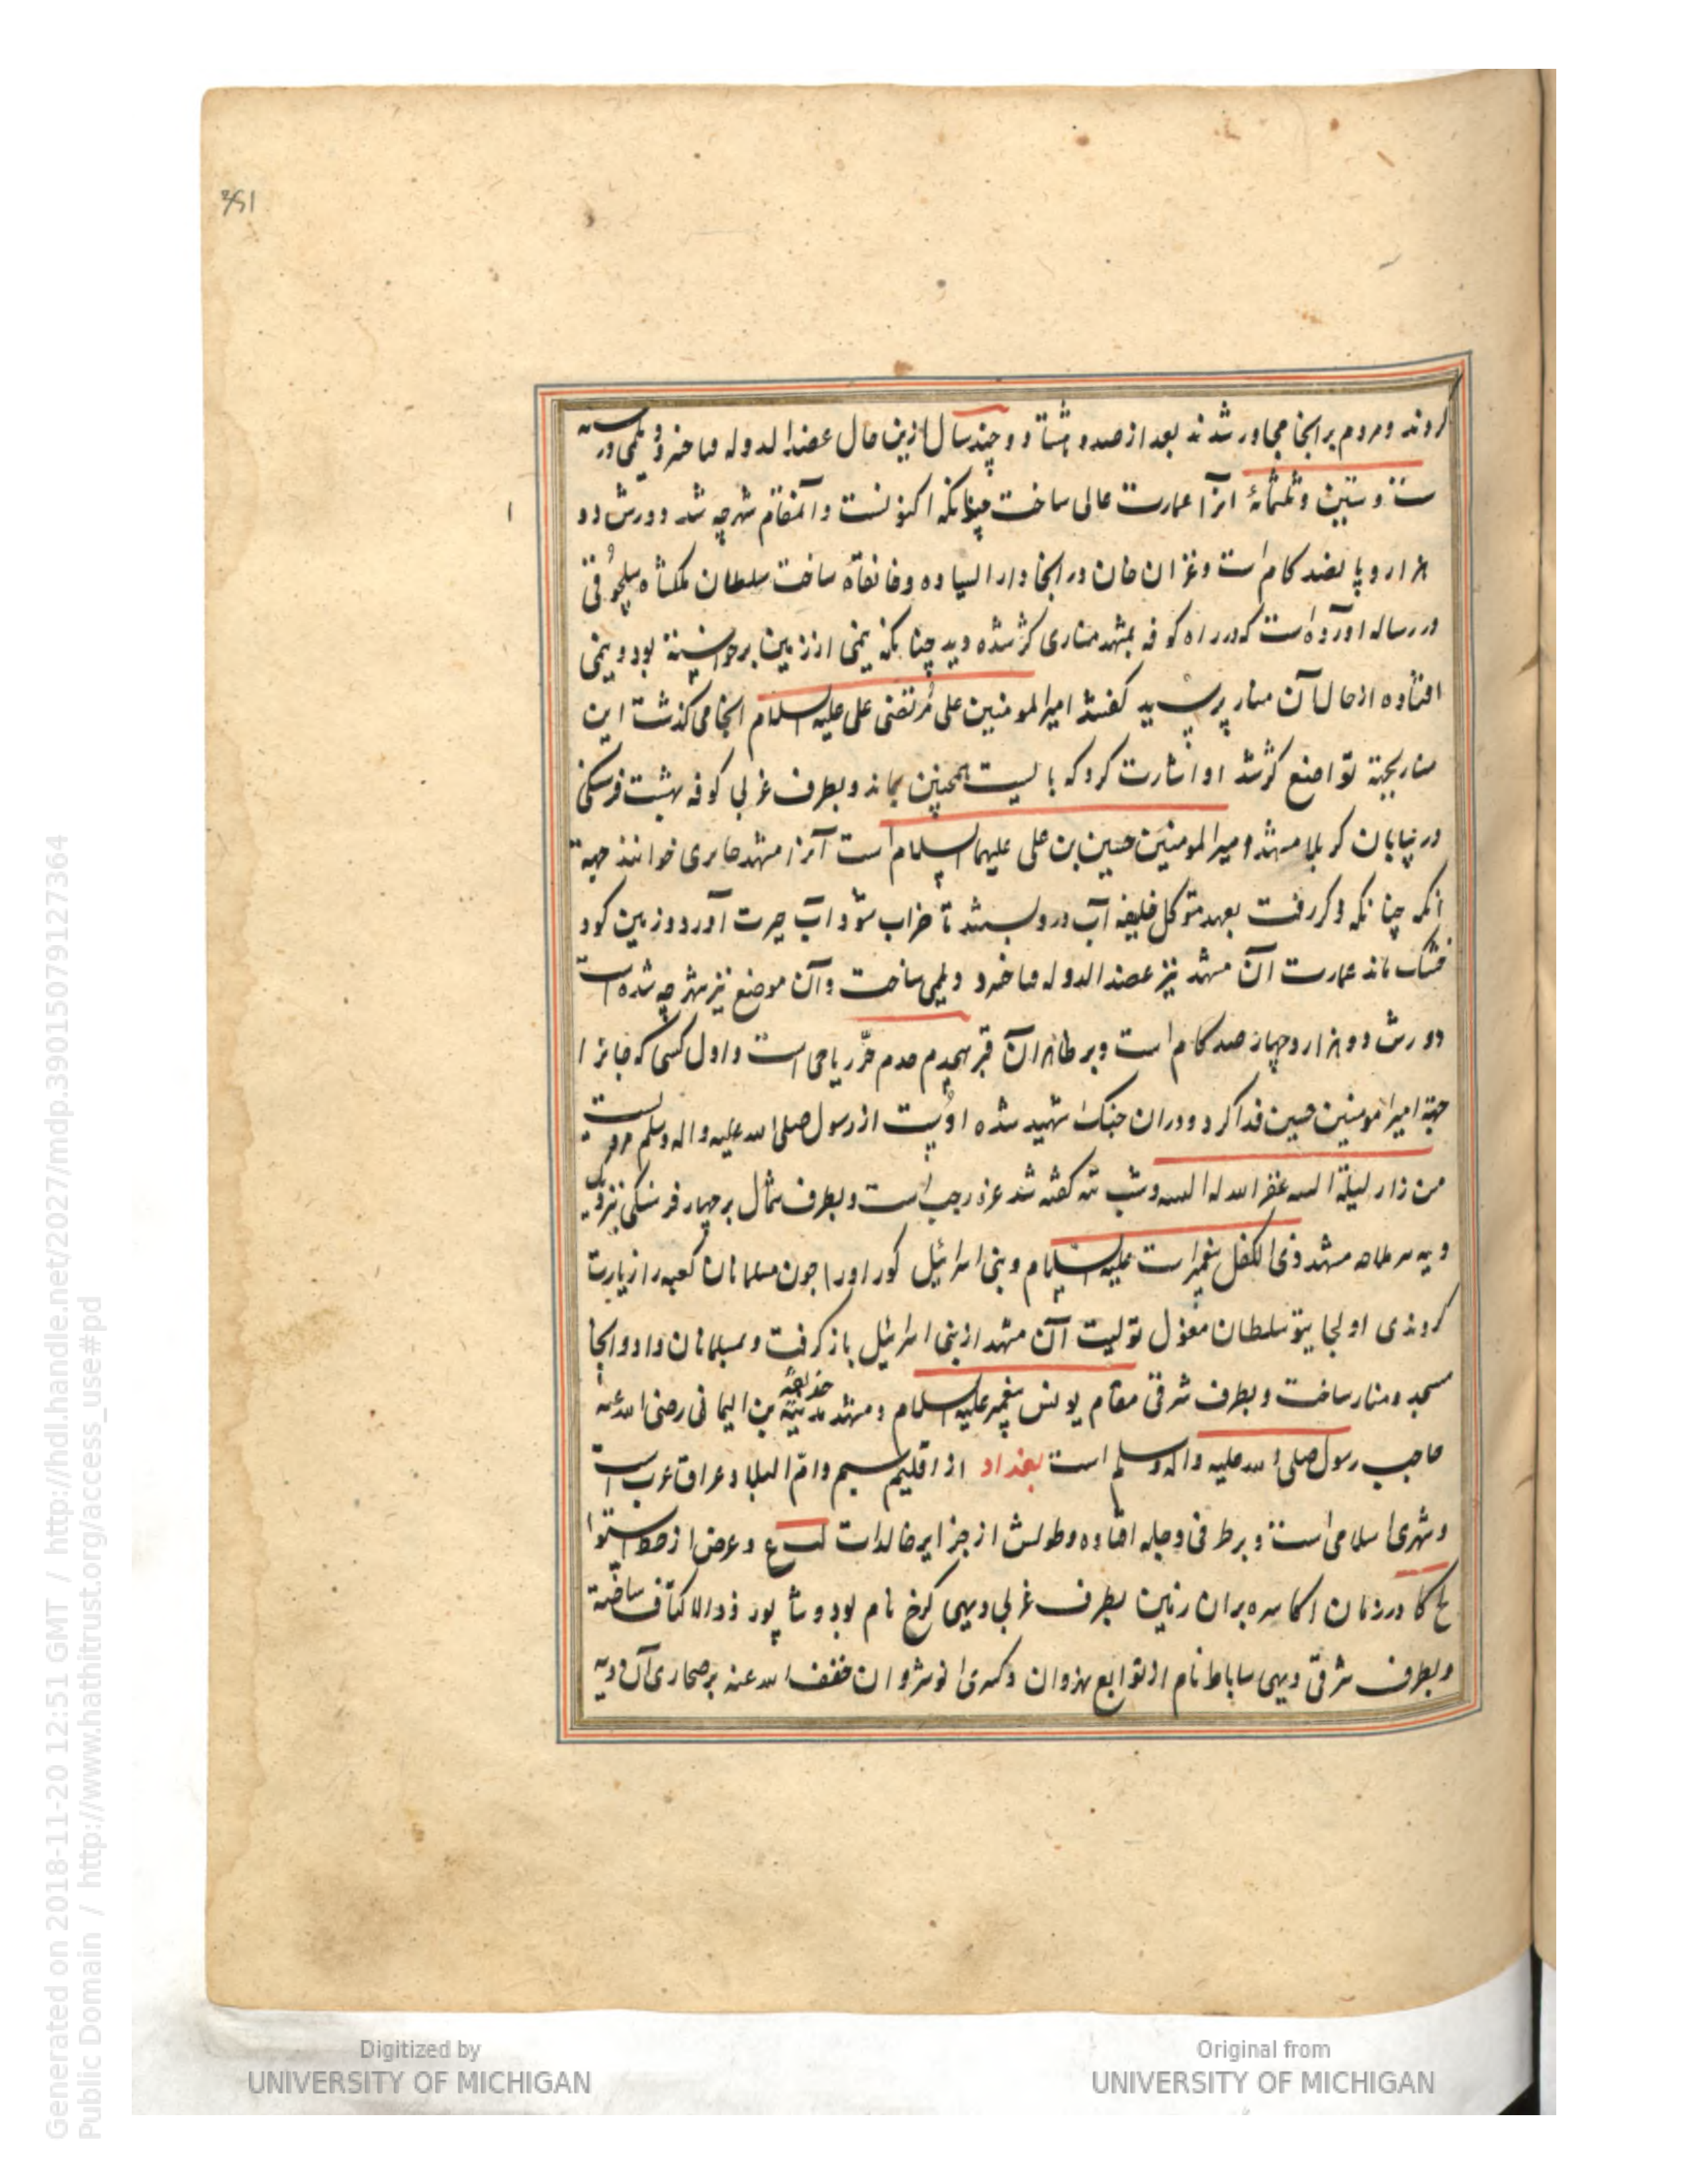 351
کردند و مردم بر انجا مجاور شدند بعد از صد و هشتاد و چند سال ازین حال عضد الدوله فناخسرو دیلمی در سنه
ست و ستین و ثلثمائة انرا عمارت عالی ساخت چنانکه اکنونست و آنمقام شهرچه شد دورش دو
هزار و پانصد کام است و غزان خان در انجا دار السیاده و خانقاه ساخت سلطان ملکشاه سلجوقی
در رساله اورده است که در راه کوفه بمشهد مناری کژ شده دید چنانکه نیمی از زمین برخواسته بود و نیمی
افتاده از حال آن منار پرسید کفتند امیر المومنین علی مرتضی علی علیه السلام انجا می کذشت این
منار بجهة تواضع کژ شد او اشارت کرد که بایست همچنین بماند و بطرف غربی کوفه بهشت فرسنکی
در بیابان کربلا مشهد امیر المومنین حسین بن علی علیهما السلام است آنرا مشهد حایری خوانند جهة
آنکه چنانکه ذکر رفت بعهد متوکل خلیفه آب درو بستند تا خراب شود آب حیرت آورد و زمین کود
خشک ماند عمارت آن مشهد نیز عضد الدوله فناخسرو دیلمی ساخت و آن موضع نیز شهرچه شده است
دورش دو هزار و چهار صد کام است و بر ظاهر آن قبر حر ریاحی است و اول کسی که جانرا
جهة امیر المومنین حسین فدا کرد و در ان جنک شهید شده اوست از رسول صلی الله علیه و اله وسلم مرویست
من زار لیلة غفر الله له و شب کفته شد غره رجب است و بطرف شمال بر چهار فرسنکی نزدیک
دیه مشهد ذی الکفل پیغمبر است علیه السلام و بنی اسرائیل کور او را چون مسلمانان کعبه را زیارت
کردندی اولجایتو سلطان مغول تولیت آن مشهد از بنی اسرائیل باز کرفت و بمسلمانان داد و انجا
مسجد و منار ساخت و بطرف شرقی مقام یونس پیغمبر علیه السلام و مشهد حذیفه بن الیمانی رضی الله عنه
صاحب رسول صلی الله علیه و اله وسلم است بغداد از اقلیم سیم و ام البلاد عراق عرب است
و شهری اسلامی است و بر طرف دجله افتاده و طولش از جزایر خالدات و عرض از خط استوا
لح کا در زمان اکاسره بران زمین بطرف غربی دیهی کرخ نام بود و شاپور ذو الاکتاف ساخته
و بطرف شرقی دیهی ساباط نام از توابع نهروان و کسری انوشروان خفف الله عنه بر صحاری آن دیه
Digitized by
UNIVERSITY OF MICHIGAN
Original from
UNIVERSITY OF MICHIGAN
Generated on 2018-11-20 12:51 GMT / http://hdl.handle.net/2027/mdp.39015079127364
Public Domain / http://www.hathitrust.org/access_use#pd